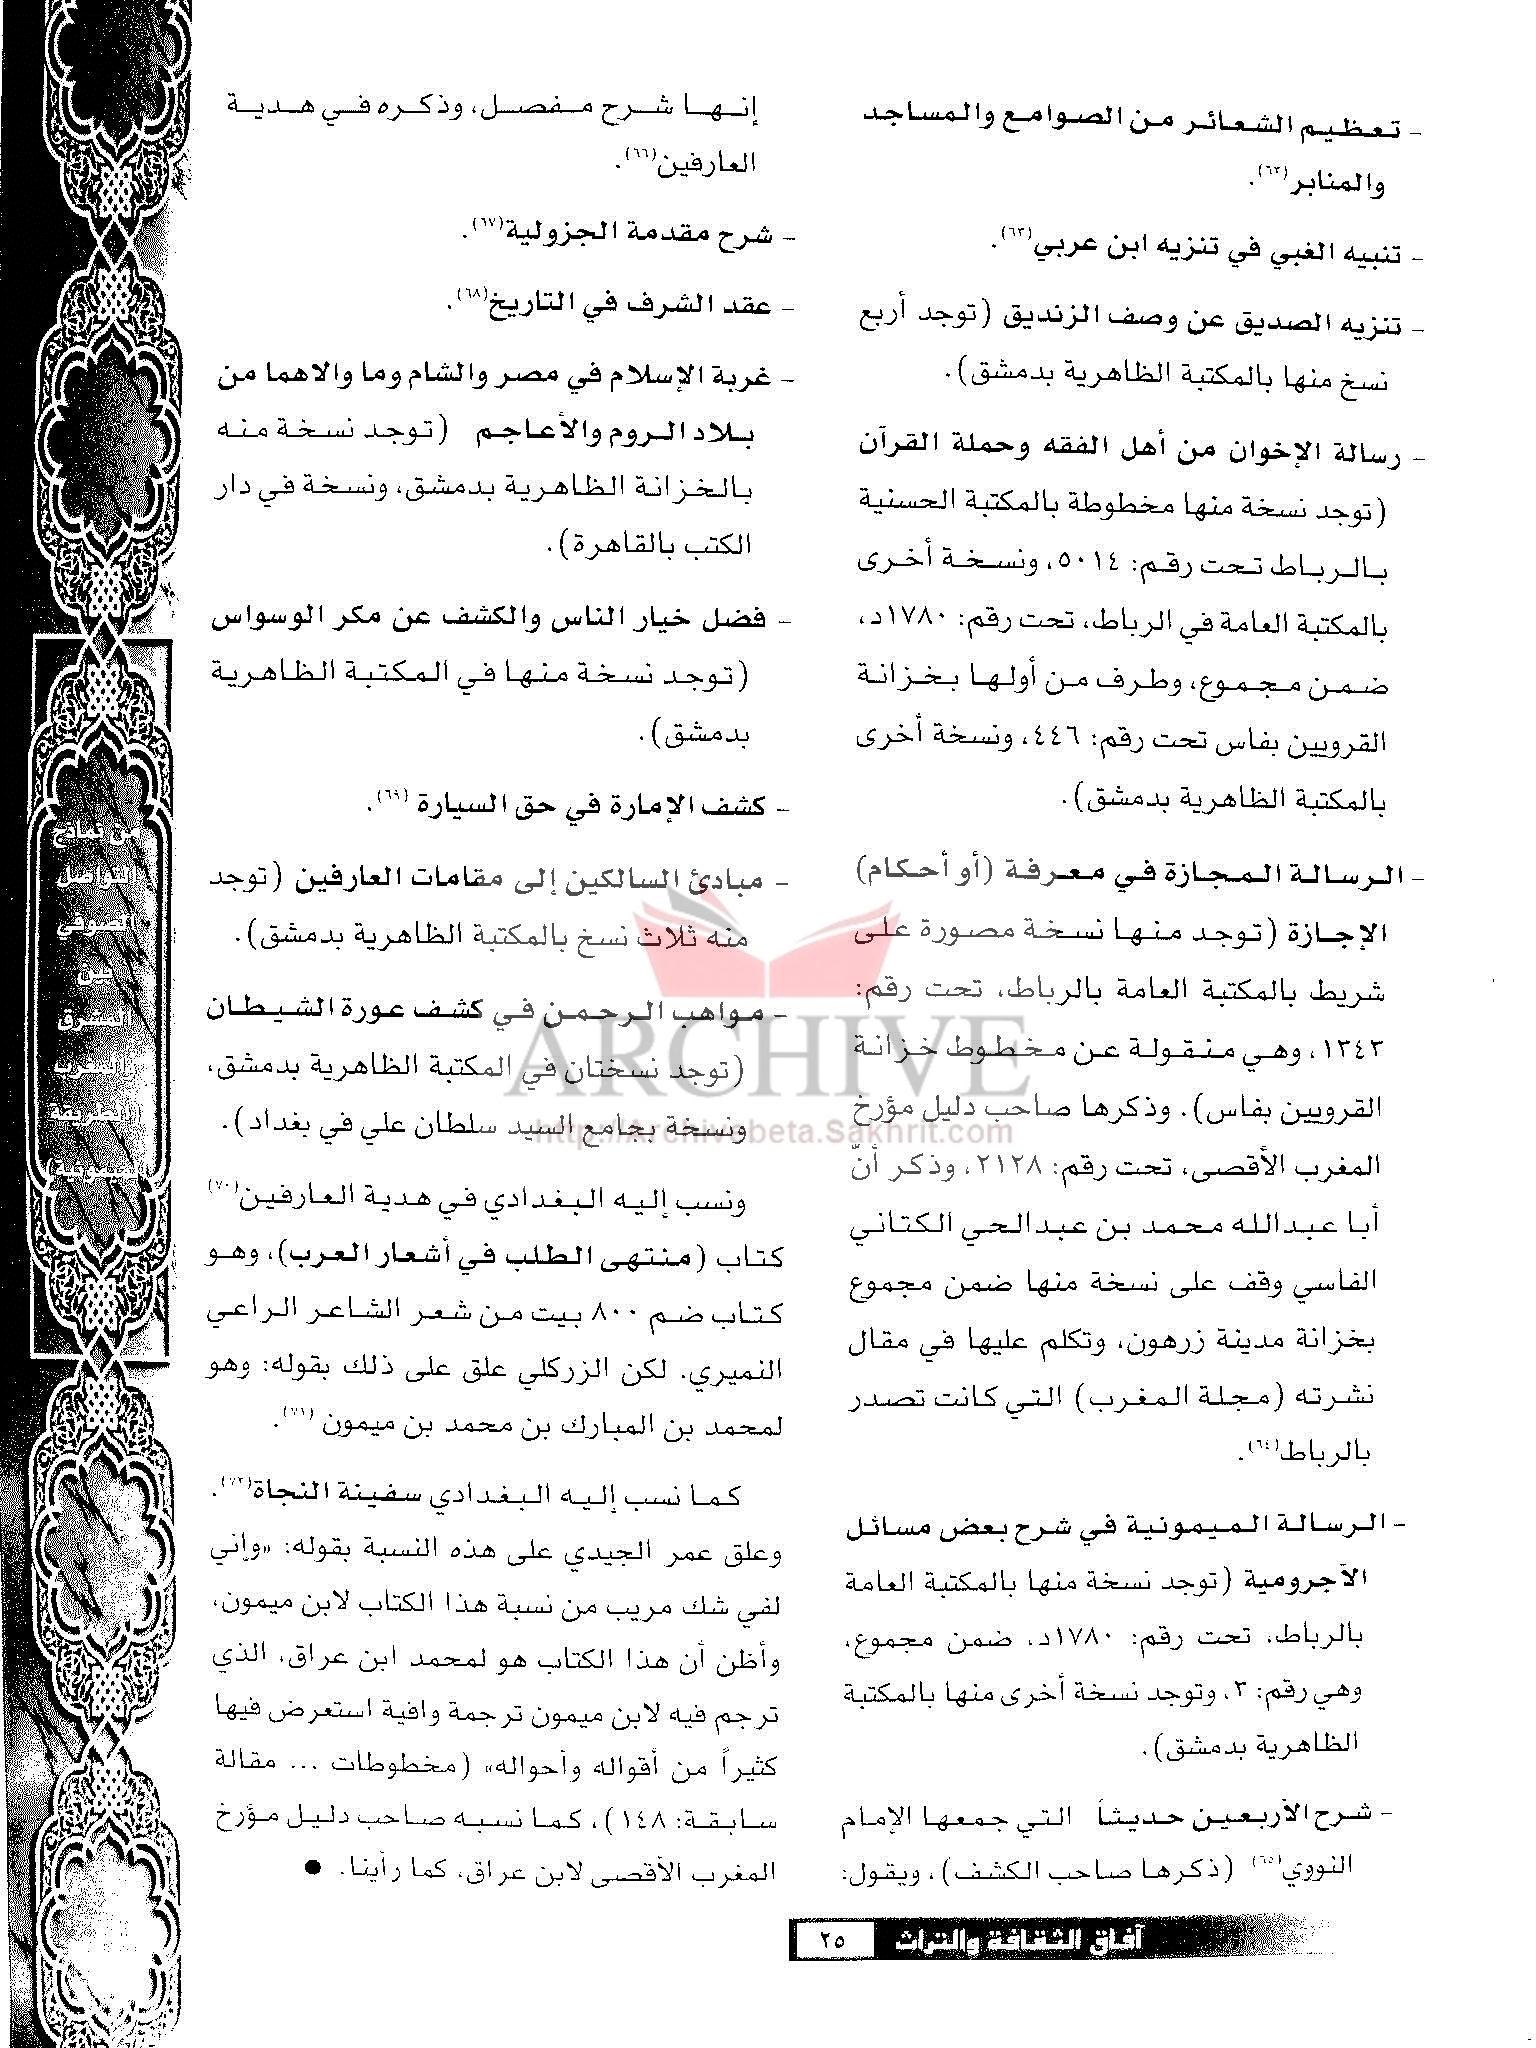 - تعظيم الشعائر من الصوامع والمساجد
والمنابر(٦٢).
- تنبيه الغبي في تنزيه ابن عربي(٦٣).
- تنزيه الصديق عن وصف الزنديق (توجد أربع
نسخ منها بالمكتبة الظاهرية بدمشق).
- رسالة الإخوان من أهل الفقه وحملة القرآن
(توجد نسخة منها مخطوطة بالمكتبة الحسنية
بالرباط تحت رقم: ٥٠١٤، ونسخة أخرى
بالمكتبة العامة في الرباط، تحت رقم: ١٧٨٠د،
ضمن مجموع، وطرف من أولها بخزانة
القرويين بفاس تحت رقم: ٤٤٦، ونسخة أخرى
بالمكتبة الظاهرية بدمشق).
- الرسالة المجازة في معرفة (أو أحكام)
الإجازة (توجد منها نسخة مصورة على
شريط بالمكتبة العامة بالرباط، تحت رقم:
١٣٤٣، وهي منقولة عن مخطوط خزانة
القرويين بفاس). وذكرها صاحب دليل مؤرخ
المغرب الأقصى، تحت رقم: ٢١٢٨، وذكر أنّ
أبا عبدالله محمد بن عبدالحي الكتاني
الفاسي وقف على نسخة منها ضمن مجموع
بخزانة مدينة زرهون، وتكلم عليها في مقال
نشرته (مجلة المغرب) التي كانت تصدر
بالرباط(٦٤).
- الرسالة الميمونية في شرح بعض مسائل
الآجرومية (توجد نسخة منها بالمكتبة العامة
بالرباط، تحت رقم: ١٧٨٠د، ضمن مجموع،
وهي رقم: ٣، وتوجد نسخة أخرى منها بالمكتبة
الظاهرية بدمشق).
- شرح الأربعين حديثاً التي جمعها الإمام
النووي(٦٥) (ذكرها صاحب الكشف)، ويقول:
إنها شرح مفصل، وذكره في هدية
العارفين(٦٦).
- شرح مقدمة الجزولية(٦٧).
- عقد الشرف في التاريخ(٦٨).
- غربة الإسلام في مصر والشام وما والاهما من
بلاد الروم والأعاجم (توجد نسخة منه
بالخزانة الظاهرية بدمشق، ونسخة في دار
الكتب بالقاهرة).
- فضل خيار الناس والكشف عن مكر الوسواس
(توجد نسخة منها في المكتبة الظاهرية
بدمشق).
- كشف الإمارة في حق السيارة (٦٩).
- مبادئ السالكين إلى مقامات العارفين (توجد
منه ثلاث نسخ بالمكتبة الظاهرية بدمشق).
- مواهب الرحمن في كشف عورة الشيطان
(توجد نسختان في المكتبة الظاهرية بدمشق،
ونسخة بجامع السيد سلطان علي في بغداد).
ونسب إليه البغدادي في هدية العارفين(٧٠)
كتاب (منتهى الطلب في أشعار العرب)، وهو
كتاب ضم ٨٠٠ بيت من شعر الشاعر الراعي
النميري. لكن الزركلي علق على ذلك بقوله: وهو
لمحمد بن المبارك بن محمد بن ميمون (٧١).
كما نسب إليه البغدادي سفينة النجاة(٧٢).
وعلق عمر الجيدي على هذه النسبة بقوله: «وإني
لفي شك مريب من نسبة هذا الكتاب لابن ميمون،
وأظن أن هذا الكتاب هو لمحمد ابن عراق، الذي
ترجم فيه لابن ميمون ترجمة وافية استعرض فيها
كثيراً من أقواله وأحواله» (مخطوطات ... مقالة
سابقة: ١٤٨)، كما نسبه صاحب دليل مؤرخ
المغرب الأقصى لابن عراق، كما رأينا. ●
من نماذج
التواصل
الصوفي
بين
المشرق
والمغرب
ARCHIVE
http://Archivebeta.Sakhrit.com
آفاق الثقافة والتراث ٢٥